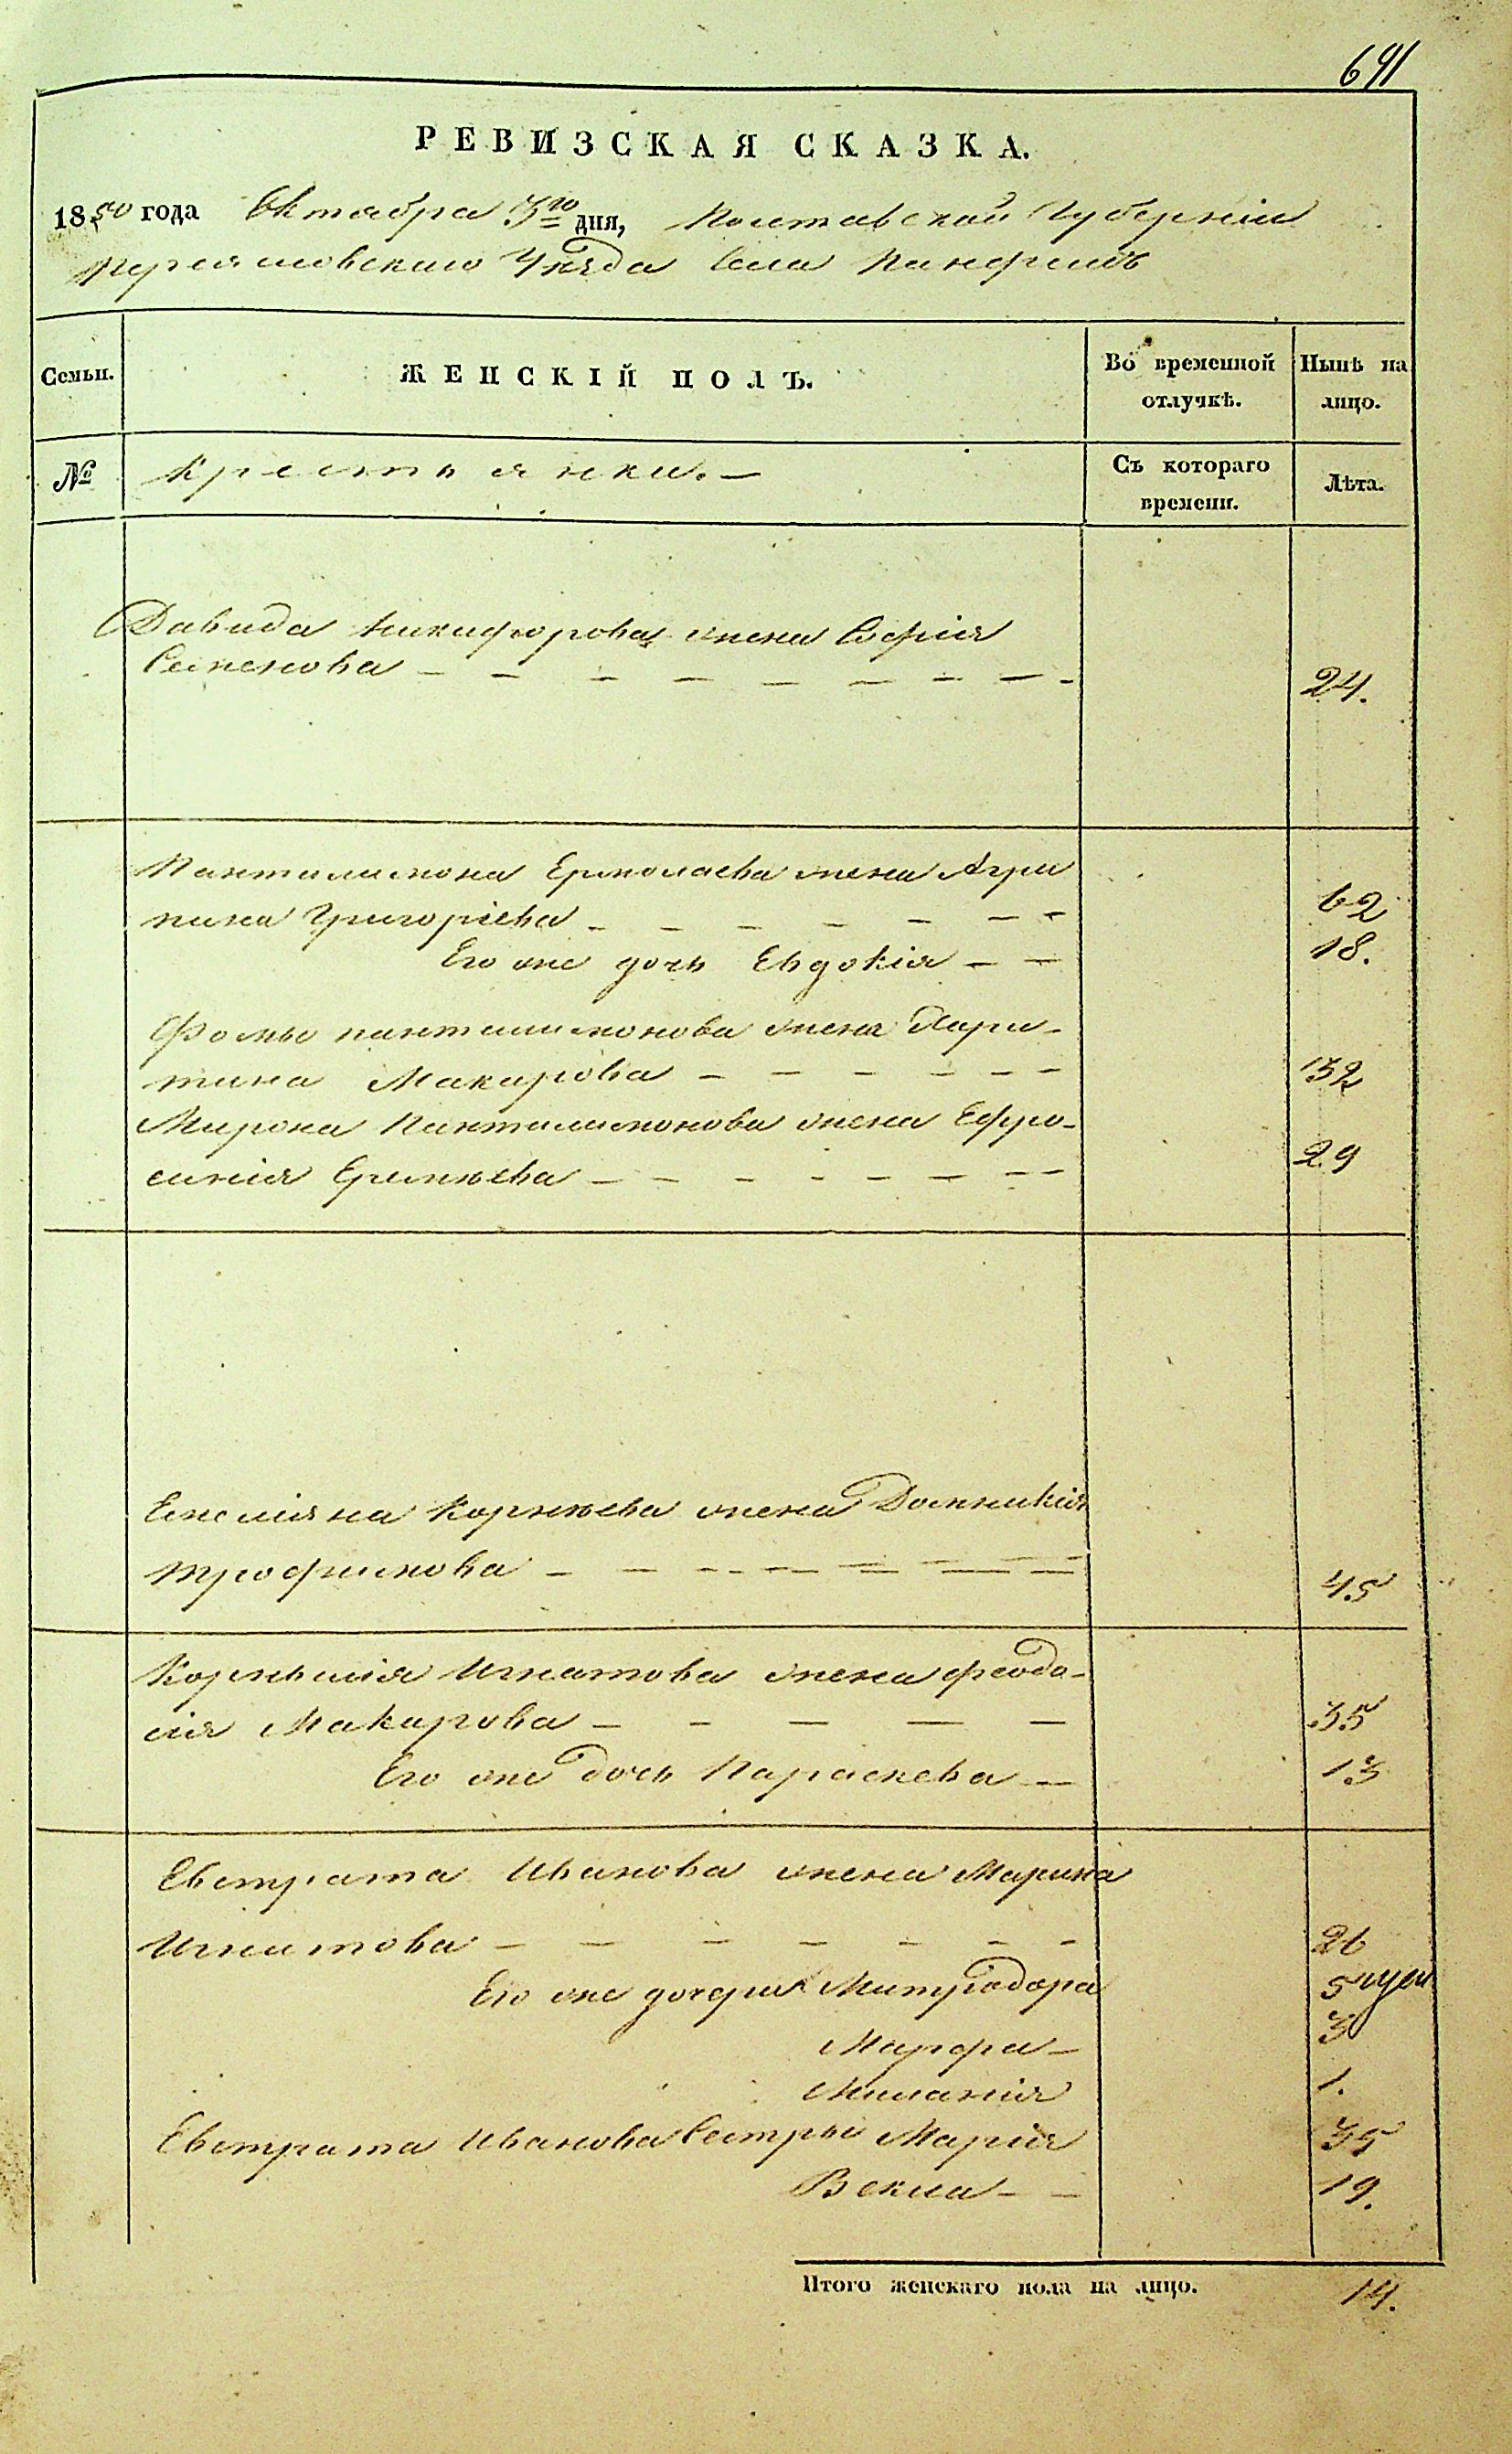 641
РЕВИЗСКАЯ СКАЗКА.
1850 года Октября 3го дня, Полтавской Губерніи
Переяславскаго Уѣзда Села Панфилъ
Семьи. ЖЕНСКІЙ ПОЛЪ. Во временной отлучкѣ. Нынѣ на лицо.
№ Крестьянки. — Съ котораго времени. Лѣта.
Давида Никифорова жена Софія
Семенова — — — — — — — — — 24.
Пантилимона Ермолаева жена Агри
пина Григоріева — — — — — — 62
Его же дочь Евдокія — — 18.
Фомы пантилимонова жена Хари-
тина Макарова — — — — — — 32
Мирона Пантилимонова жена Ефро-
синія Еремѣева — — — — — — — — 29
Емеліяна Корнѣева жена Домникія
Трофимова — — — — — — — — 45
Корнылія Игнатова жена Феодо-
сія Макарова — — — — — 35
Его же дочь Параскева — 13
Евстрата Иванова жена Марина
Игнатова — — — — — — — 26
Его же дочери Митродора 5
Марфа — 3
Миланія 1.
Евстрата Иванова Сестры Марія 35
Векла — — 19.
Итого женскаго пола на лицо. 14.